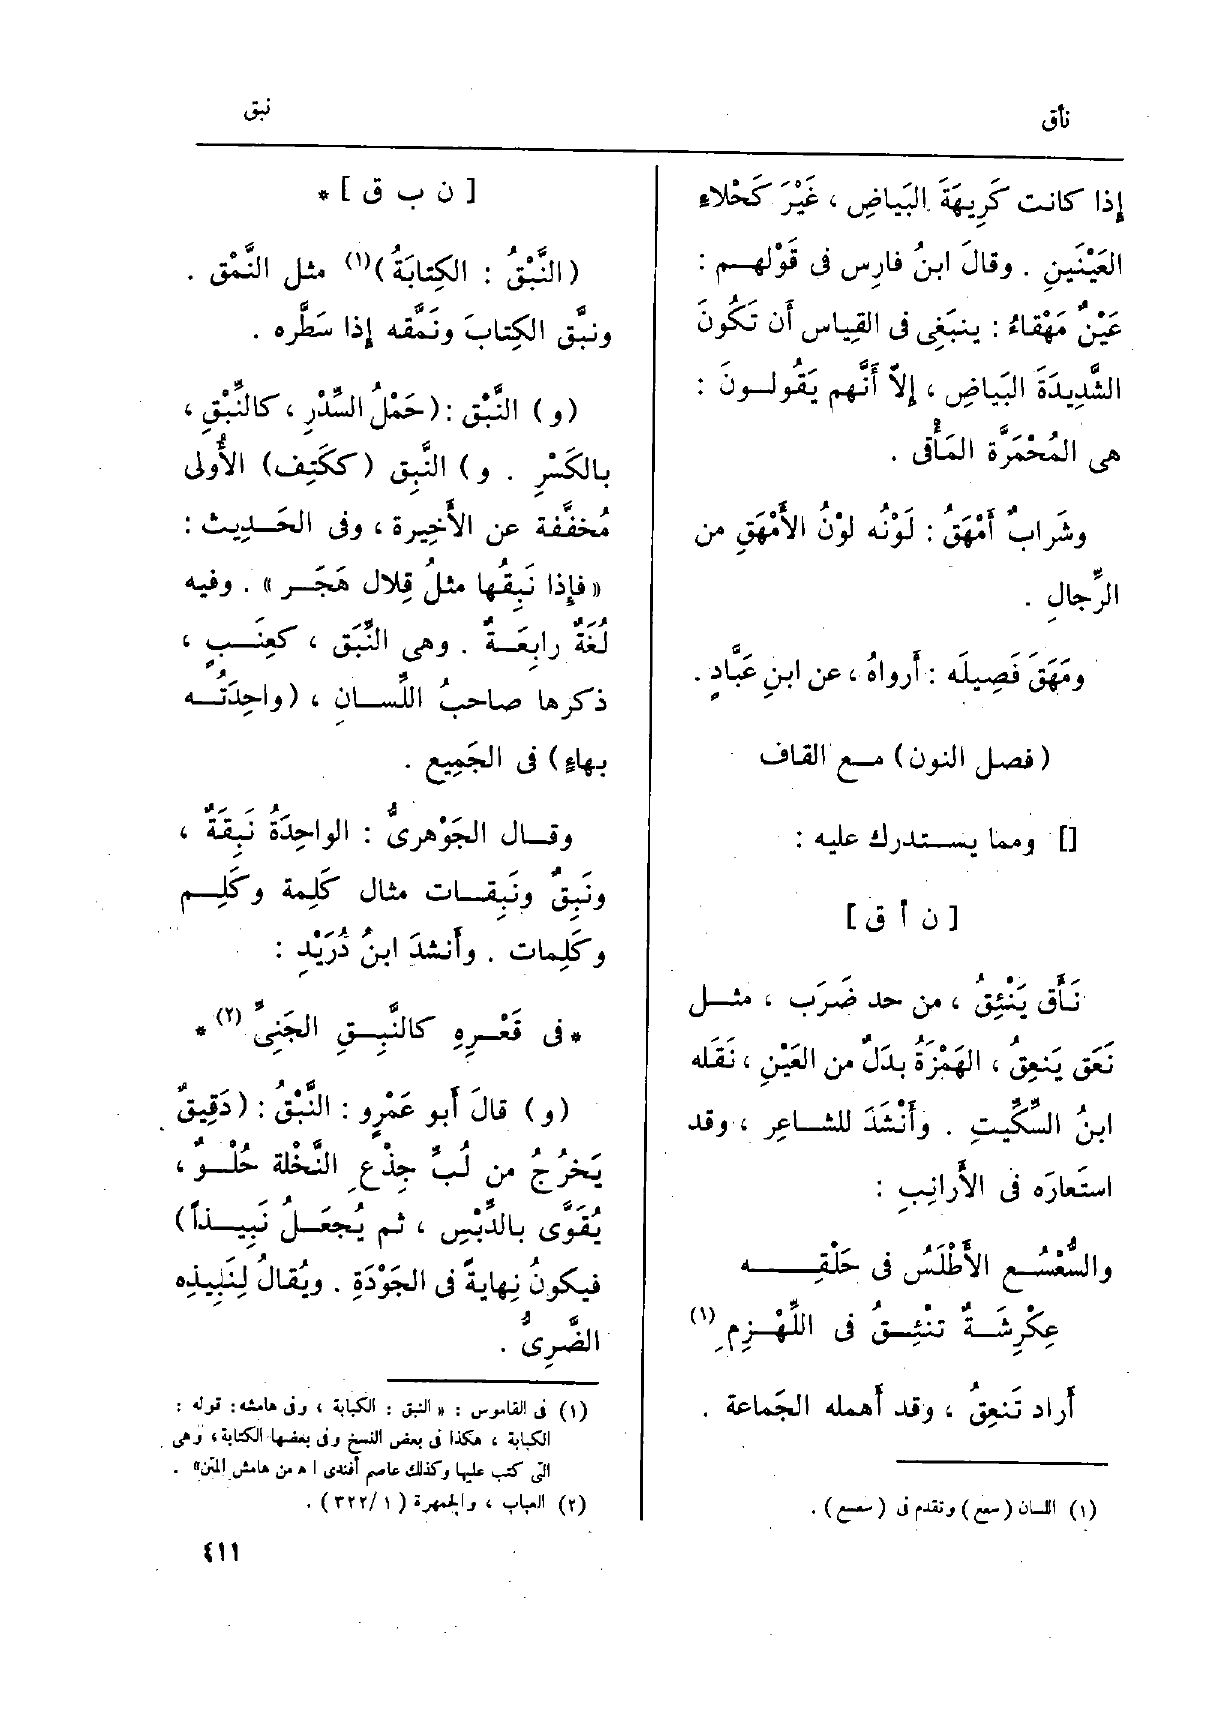 نأق
نبق
إذا كانت كَرِيهَةَ البَياضِ ، غَيْرَ كَحْلاءِ
العَيْنَينِ . وقالَ ابنُ فارِس فى قَوْلهم :
عَيْنٌ مَهْقاءُ : ينبَغِى فى القِياس أَن تَكُونَ
الشَّدِيدَةَ البَياضِ ، إِلاّ أَنَّهم يَقُولونَ :
هى المُحْمَرَّة المَأْقى .
وشَرابٌ أَمْهَقُ : لَوْنُه لوْنُ الأَمْهَقِ من
الرِّجالِ .
ومَهَقَ فَصِيلَه : أَرواهُ ، عن ابنِ عَبَّادٍ .
(فصل النون) مع القاف
[] ومما يستدرك عليه :
[ ن أ ق ]
نَأَق يَنْئِقُ ، من حد ضَرَب ، مثل
نَعَق يَنعِقُ ، الهَمْزَةُ بدَلٌ من العَيْنِ ، نَقَله
ابنُ السِّكِّيتِ . وأَنْشَدَ للشاعِر ، وقد
استَعارَه فى الأَرانِبِ :
والسُّعْسُع الأَطْلَسُ فى حَلْقِه
عِكْرِشَةٌ تنْئِقُ فى اللِّهْزِمِ (١)
أَراد تَنعِقُ ، وقد أَهمله الجَماعة .
(١) اللسان (سعع) وتقدم فى (سعسع) .
[ ن ب ق ] *
(النَّبْقُ : الكِتابَةُ)(١) مثل النَّمْق .
ونبَّق الكِتابَ ونَمَّقه إذا سَطَّره .
(و) النَّبْق :(حَمْلُ السِّدْرِ ، كالنِّبْقِ ،
بالكَسْرِ . و) النَّبِق (ككَتِف) الأُولى
مُخفَّفة عن الأَخِيرة ، وفى الحَديث :
«فإِذا نَبِقُها مثلُ قِلال هَجَر» . وفيه
لُغَةٌ رابِعَةٌ . وهى النِّبَق ، كعِنَبٍ ،
ذكرها صاحبُ اللِّسانِ ، (واحِدَتُه
بهاءٍ) فى الجَمِيع .
وقال الجَوْهرىُّ : الواحِدَةُ نَبِقَةٌ ،
ونَبِقٌ ونَبِقات مثال كَلِمة وكَلِم
وكَلِمات . وأَنشدَ ابنُ دُرَيْدٍ :
* فى قَعْرِهِ كالنَّبِقِ الجَنِىِّ (٢) *
(و) قالَ أَبو عَمْرٍو : النَّبْقُ : (دَقِيقٌ
يَخرُجُ من لُبِّ جِذْعِ النَّخْلة حُلْوٌ ،
يُقَوَّى بالدِّبْسِ ، ثم يُجعَلُ نَبِيذاً)
فيكونُ نِهايةً فى الجَوْدَةِ . ويُقالُ لِنَبِيذِه
الضَّرِىُّ .
(١) فى القاموس : «النبق : الكبابة ، وفى هامشه: قوله :
الكبابة ، هكذا فى بعض النسخ وفى بعضها الكتابة ، وهى
التى كتب عليها وكذلك عاصم أفندى ا ه من هامش المتن» .
(٢) العباب ، والجمهرة (٣٢٢/١) .
٤١١